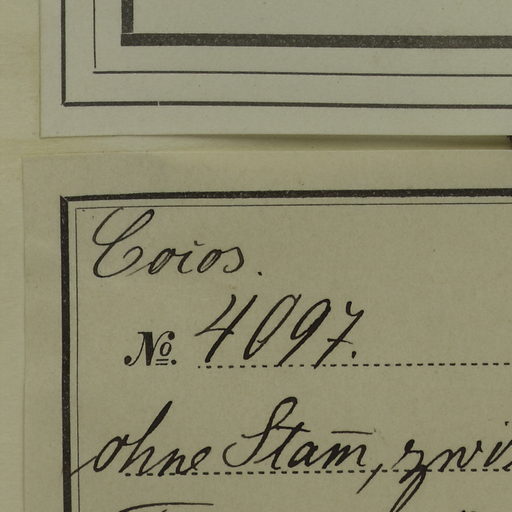 Cocos.
No. 4097.
ohne Stam̄, zwi